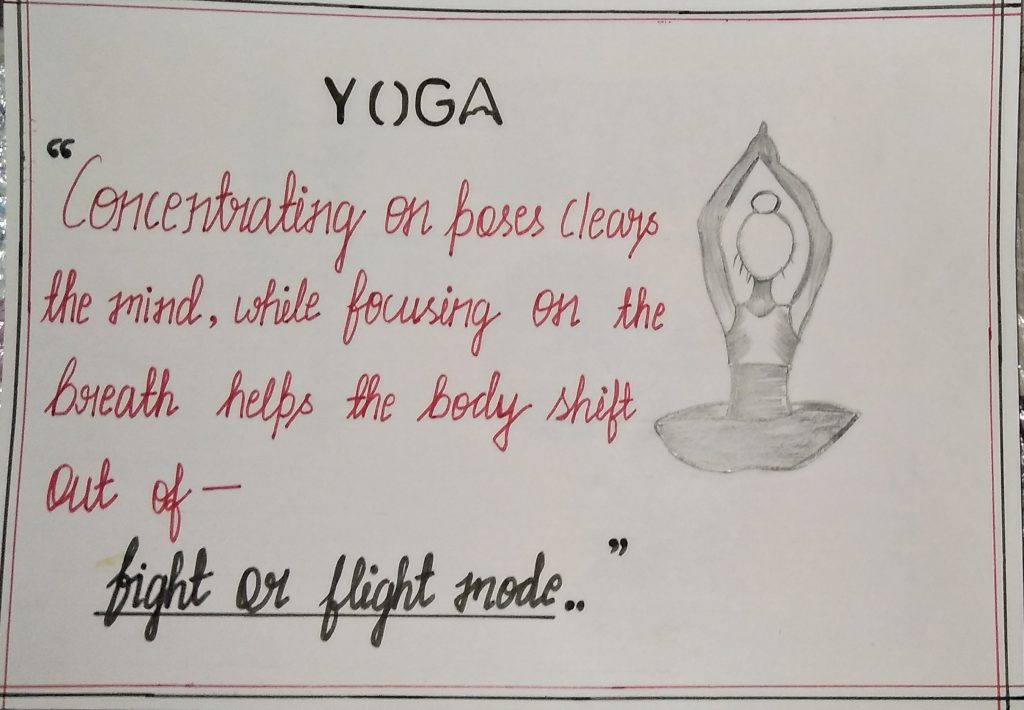 YOGA
“Concentrating on poses clears
the mind, while focusing on the
breath helps the body shift
out of —
fight or flight mode..”